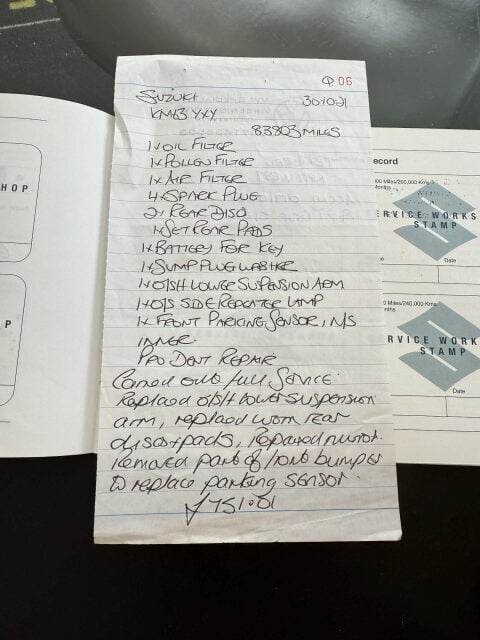 06
SUZUKI
KM13 YXY
83803 MILES
1x OIL FILTER
1x POLLEN FILTER
1x AIR FILTER
4x SPARK PLUG
2x REAR DISC
1x SET REAR PADS
1x BATTERY FOR KEY
1x SUMP PLUG WASHER
1x O/S/H LOWER SUSPENSION ARM
1x O/S SIDE REPEATER LAMP
1x FRONT PARKING SENSOR, N/S
INNER
DENT REPAIR
Carried out full service.
Replaced o/s/h lower suspension
arm, replaced worn rear
discs + pads, repaired mirror.
Removed part of front bumper
to replace parking sensor.
751.01
HOP
P
ecord
00 Miles/200,000 Kms
Months
ERVICE WORKS
STAMP
Date
00 Miles/240,000 Kms
nths
RVICE WORK
STAMP
Date